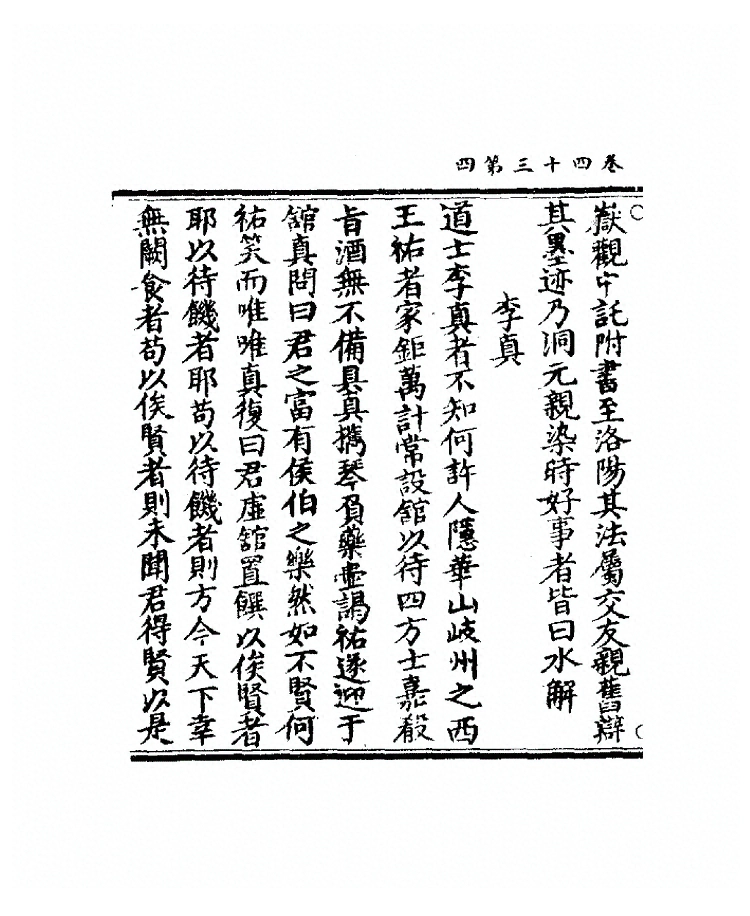 卷四十三第四
嶽觀中託附書至洛陽其法屬交友親舊辯
其墨迹乃洞元親染時好事者皆曰水解
李真
道士李真者不知何許人隱華山岐州之西
王祐者家鉅萬計常設舘以待四方士嘉殽
旨酒無不備具真擕琴負藥壷謁祐遂迎于
舘真問曰君之富有侯伯之樂然如不賢何
祐笑而唯唯真復曰君虛舘置饌以俟賢者
耶以待饑者耶茍以待饑者則方今天下幸
無闕食者茍以俟賢者則未聞君得賢以是